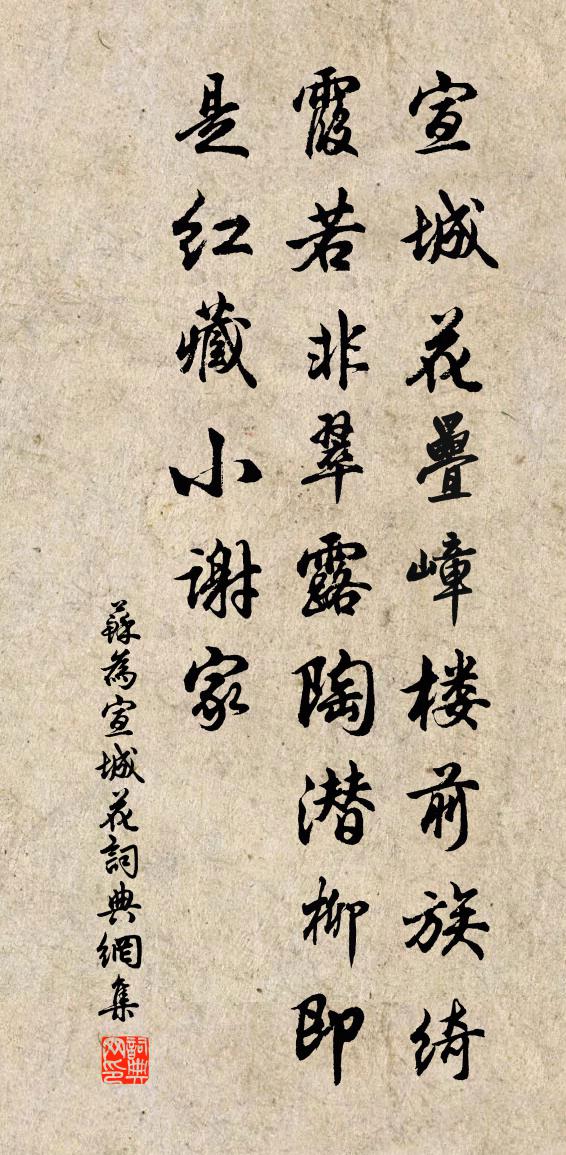 宣城花疊嶂楼前族绮
霞若非翠露陶潜柳即
是红藏小谢家
蘇為宣城花詞典網集
詞典网印